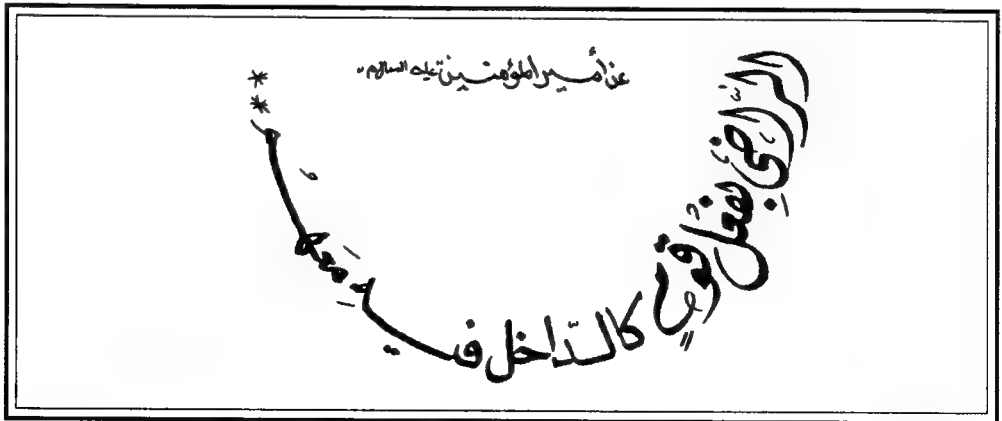 عن أمير المؤمنين عليه السلام
الرَّاضِي بِفِعْلِ قَوْمٍ كالدّاخل فيهِ مَعَهُم